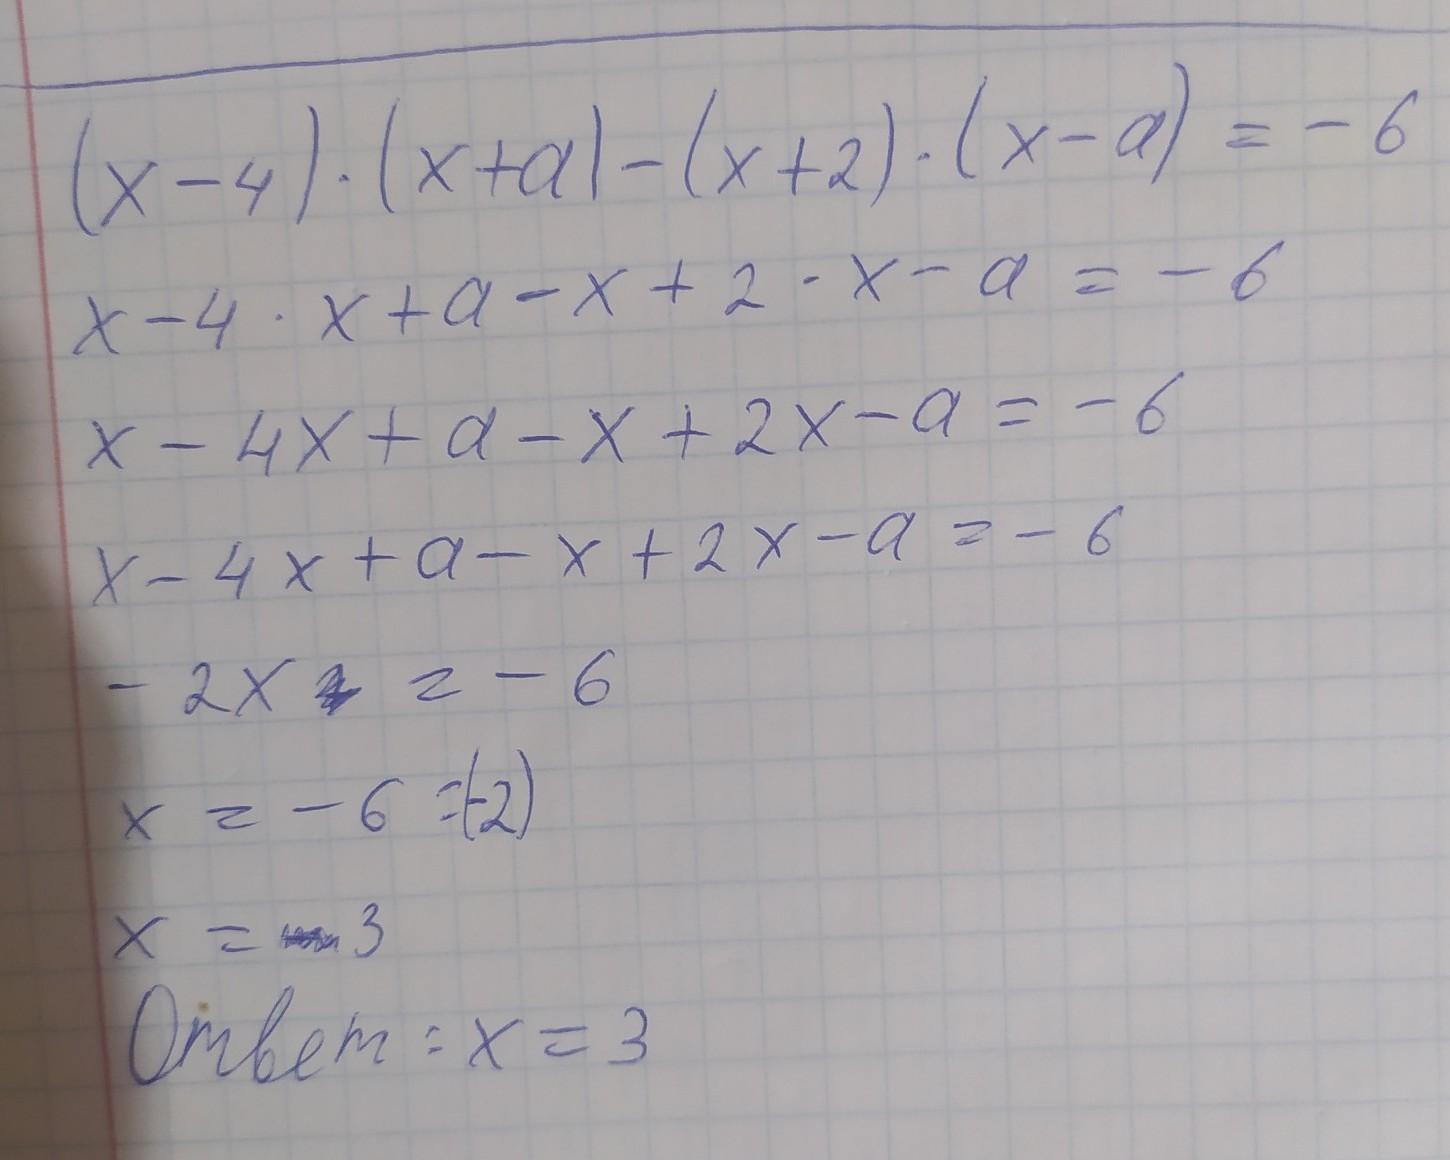 (x-4)·(x+a)-(x+2)·(x-a)=-6
x-4·x+a-x+2·x-a=-6
x-4x+a-x+2x-a=-6
x-4x+a-x+2x-a=-6
-2x=-6
x=-6:(-2)
x=3
Ответ: x=3